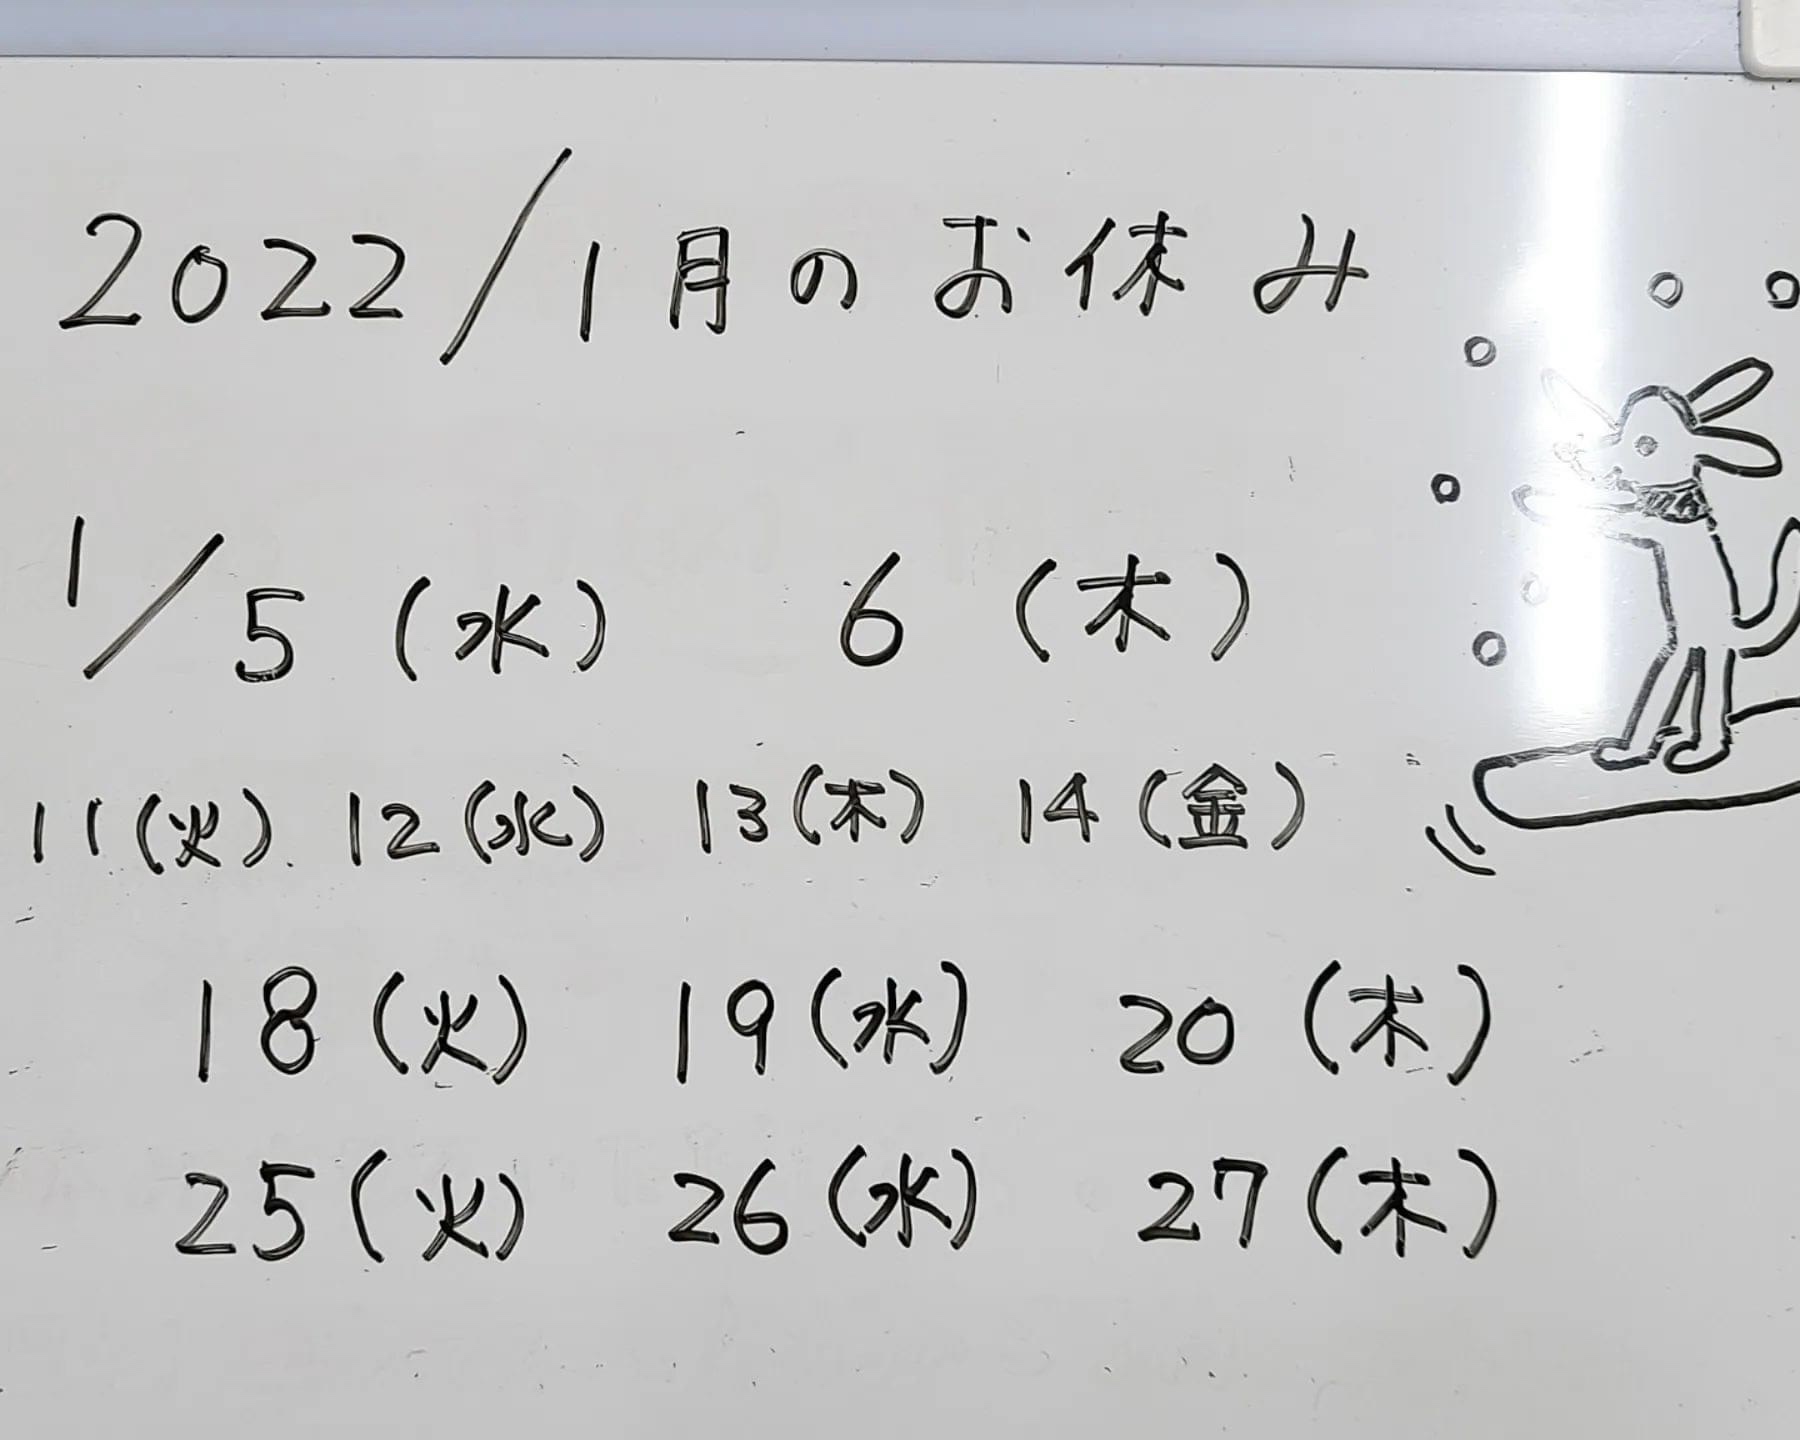 2022/1月のお休み
1/5(水) 6(木)
11(火). 12(水) 13(木) 14(金)
18(火) 19(水) 20(木)
25(火) 26(水) 27(木)